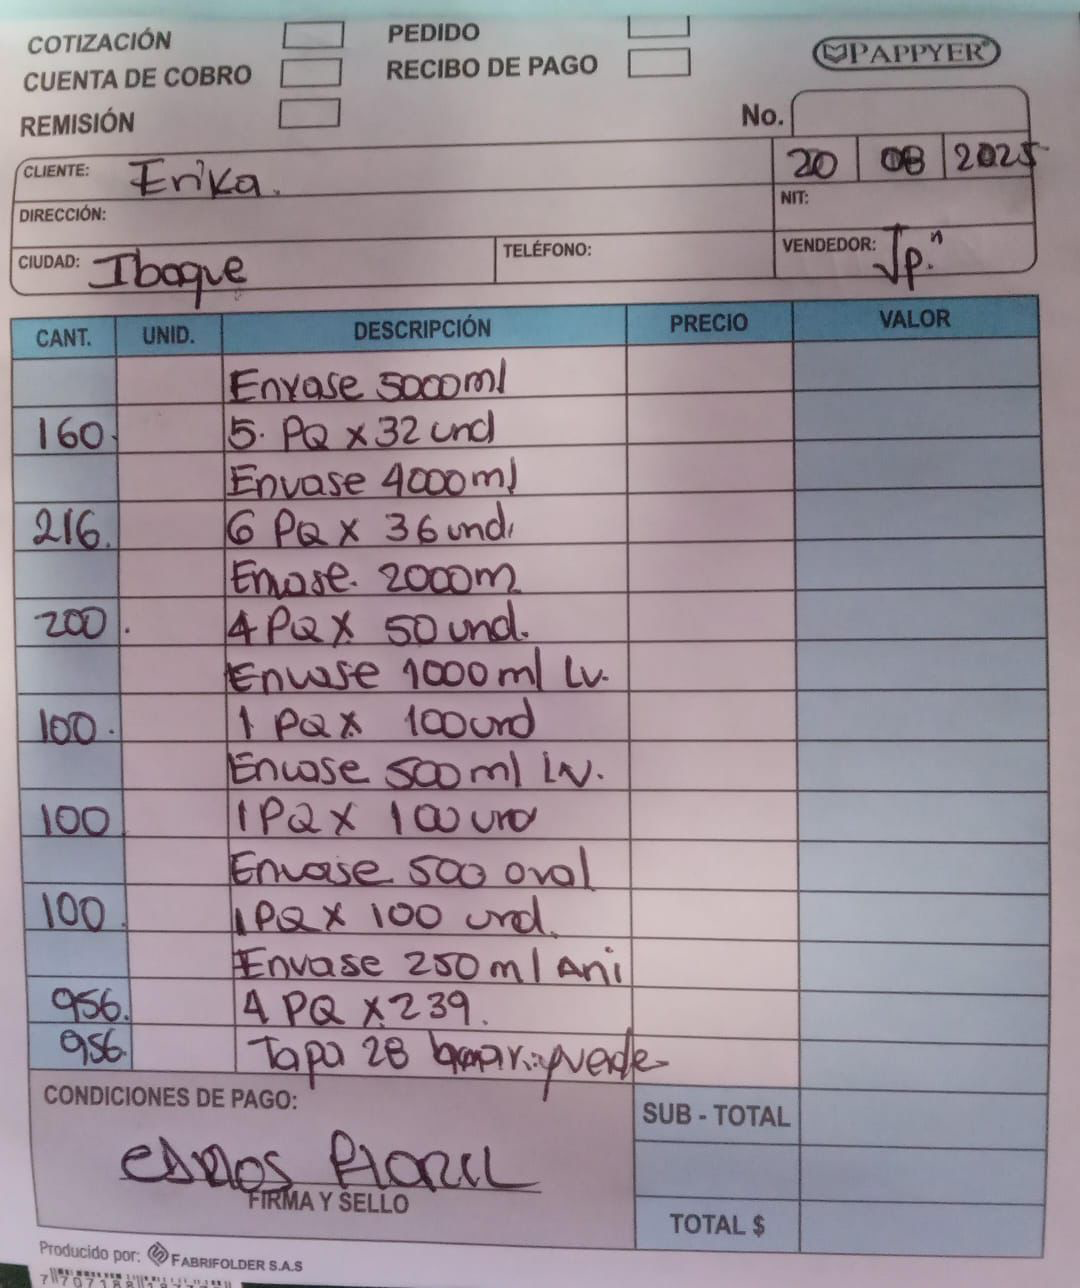 COTIZACIÓN PEDIDO
CUENTA DE COBRO RECIBO DE PAGO
PAPPYER
REMISIÓN
No.
CLIENTE: Erika. 20 08 2025
DIRECCIÓN: NIT:
CIUDAD: Ibague TELÉFONO: VENDEDOR: Jp.
CANT. UNID. DESCRIPCIÓN PRECIO VALOR
Envase 5000ml
160. 5. PQ x 32 und
Envase 4000ml
216. 6 PQ x 36 und.
Envase. 2000m
200. 4 PQ x 50 und.
Envase 1000ml Lv.
100. 1 PQ x 100 und
Envase 500ml Lv.
100 1 PQ x 100 und
Envase 500 oval
100. 1 PQ x 100 und.
Envase 250ml Ani
956. 4 PQ x 239.
956. Tapa 28
CONDICIONES DE PAGO:
SUB - TOTAL
FIRMA Y SELLO
TOTAL $
Producido por: FABRIFOLDER S.A.S